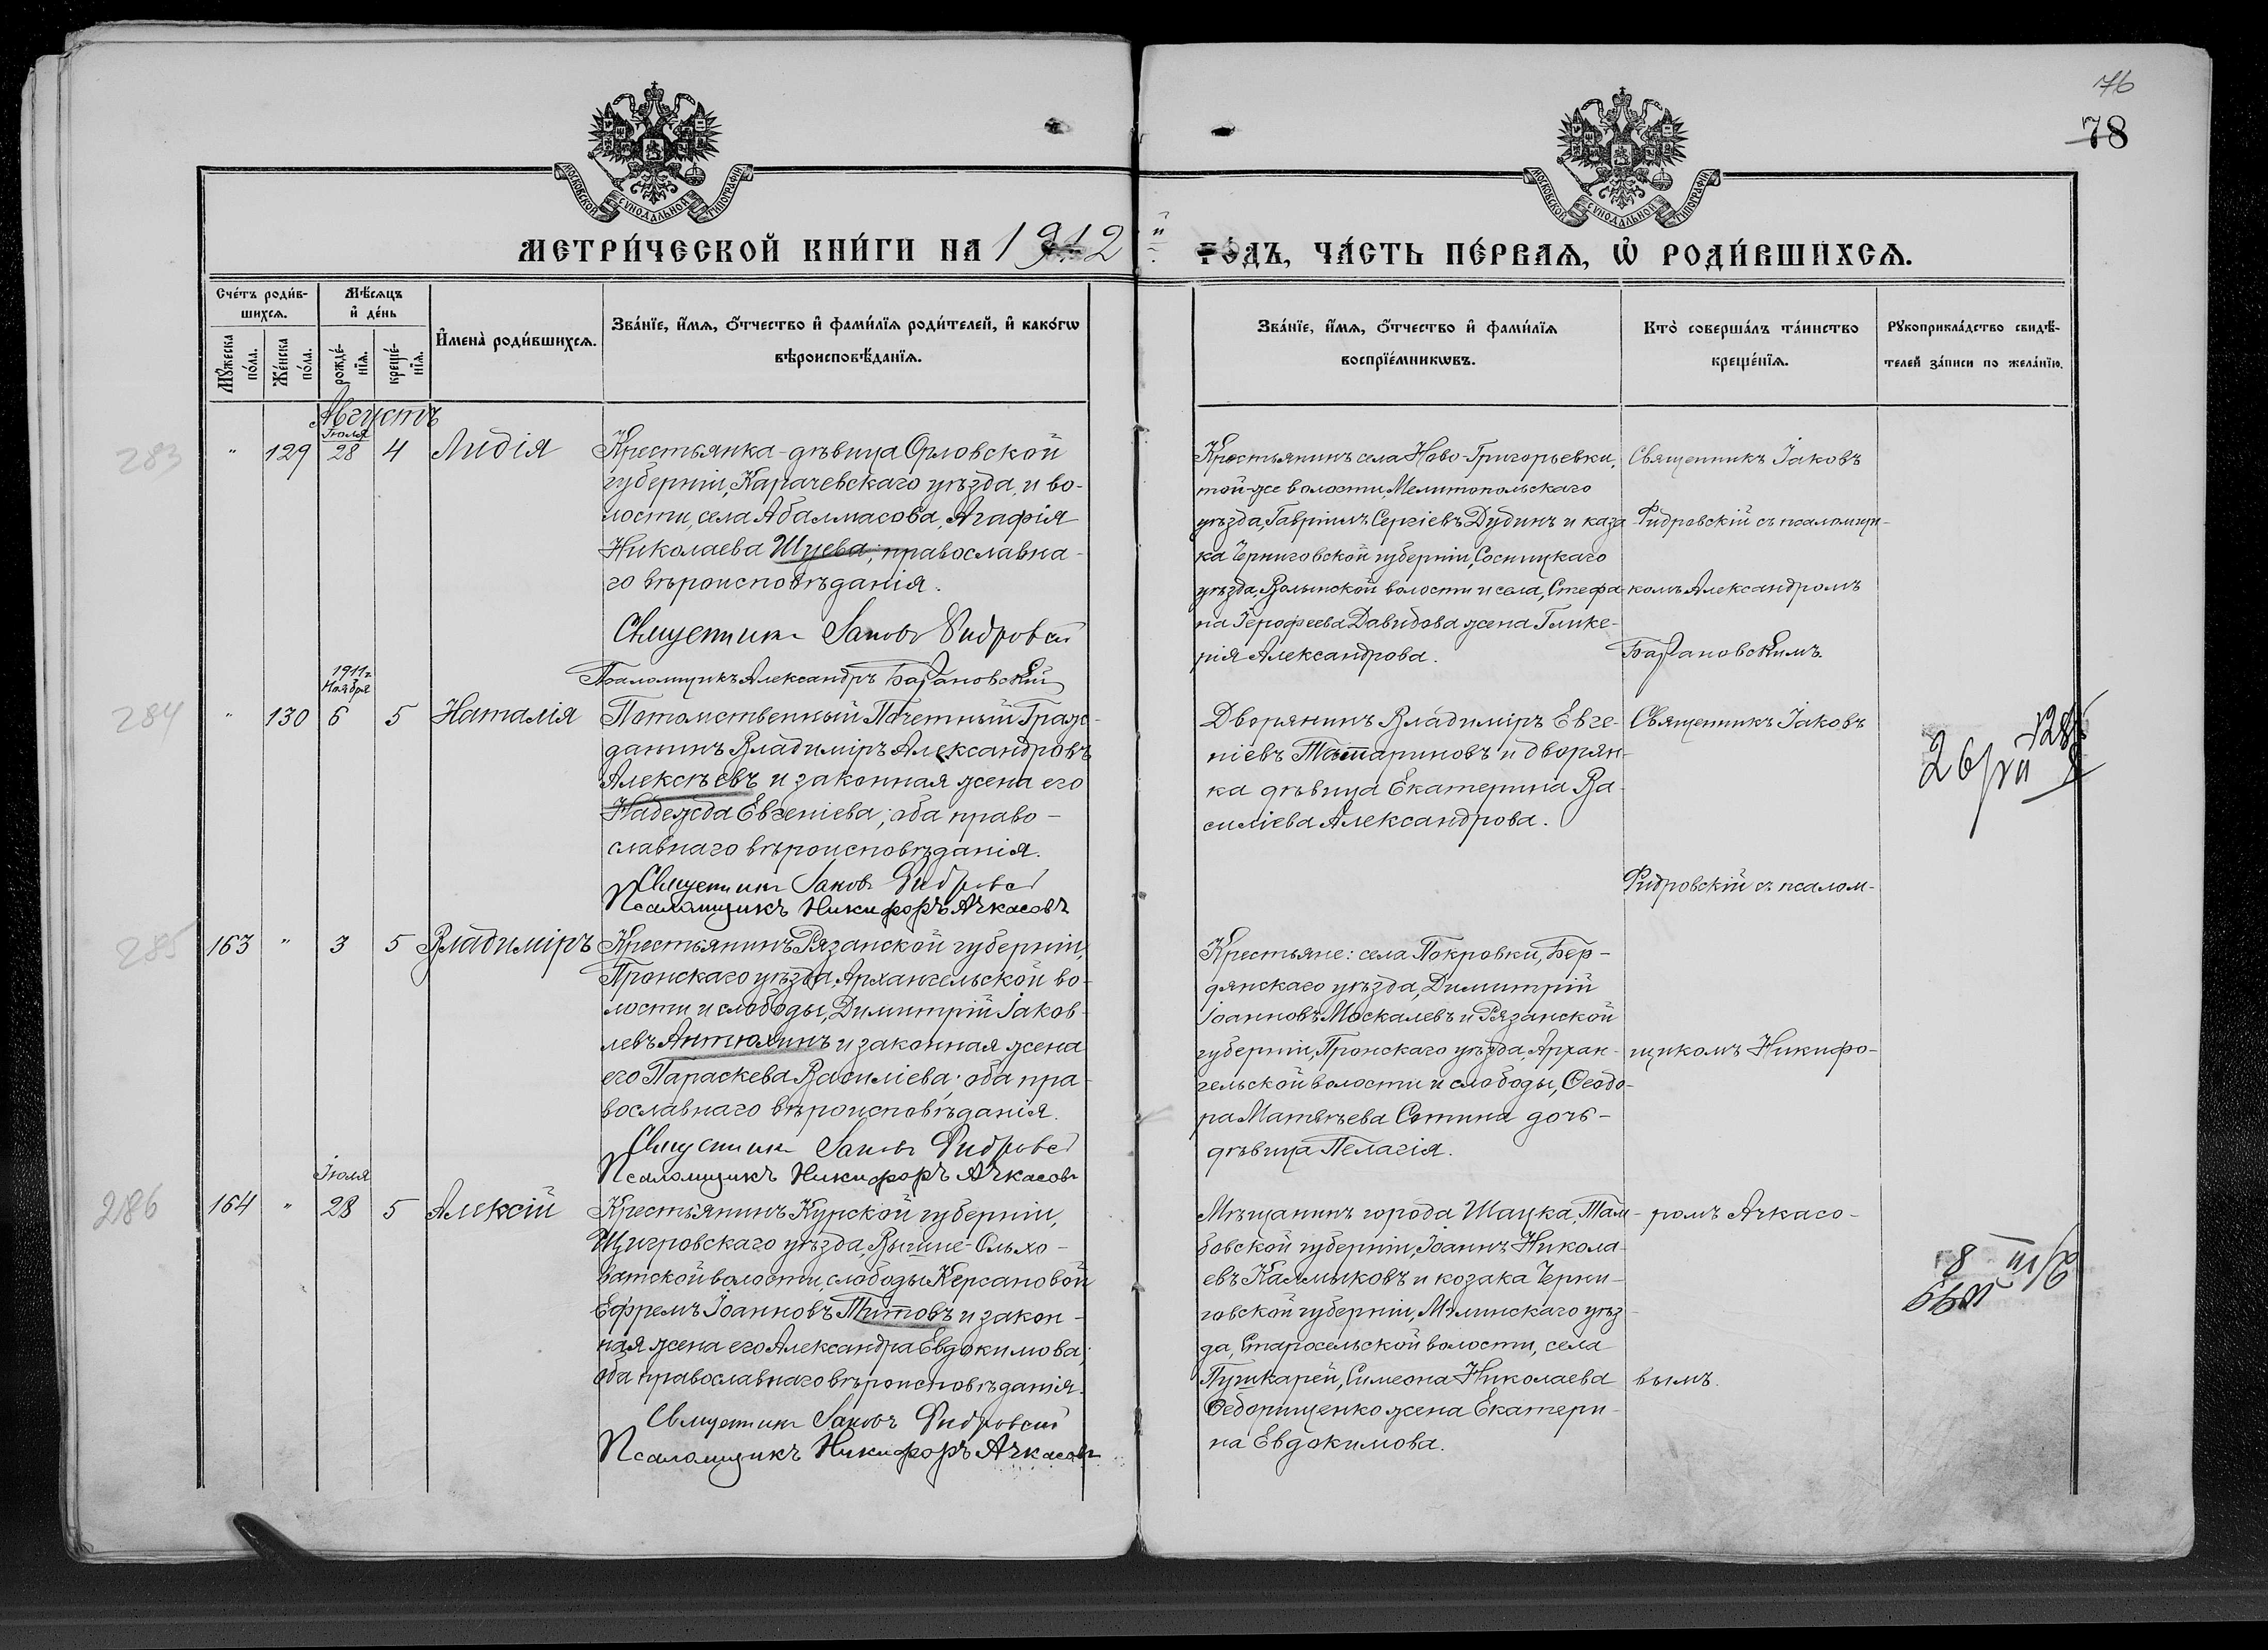 76
78
МОСКОВСКОЙ СѴНОДАЛЬНОЙ ТИПОГРАФІИ
МОСКОВСКОЙ СѴНОДАЛЬНОЙ ТИПОГРАФІИ
МЕТРИ́ЧЕСКОЙ КНИ́ГИ НА 1912 й ГО́ДЪ, ЧА́СТЬ ПЕ́РВАЯ, Ѡ҆ РОДИ́ВШИХСЯ.
Сче́тъ роди́в-
шихся.
Мꙋ́жеска по́ла.
Же́нска по́ла.
Мѣ́сяцъ
и҆ де́нь
рожде́-
нїя.
креще́-
нїя.
И҆мена̀ роди́вшихся.
Зва́нїе, и҆́мя, о҆́тчество и҆ фами́лїя роди́телей, и҆ како́гѡ
вѣроисповѣ́данїя.
Зва́нїе, и҆́мя, о҆́тчество и҆ фами́лїя
воспрїе́мникѡвъ.
Кто̀ соверша́лъ та́инство
креще́нїя.
Рꙋкоприкла́дство свидѣ́-
телей за́писи по жела́нїю.
Августъ
283
"
129
Іюля
28
4
Лидія
Крестьянка-дѣвица Орловской
губерніи, Карачевскаго уѣзда, и во-
лости, села Абалмасова, Агафія
Николаева Шуева; православна-
го вѣроисповѣданія.
Священникъ Іаковъ Фидровскій
Псаломщикъ Александръ Барановскій
Крестьянинъ села Ново-Григорьевки,
той-же волости, Мелитопольскаго
уѣзда, Гавріилъ Сергіевъ Дудинъ и каза-
ка Черниговской губерніи, Сосницкаго
уѣзда, Волынской волости и села, Стефа-
на Іерофеева Давидова жена Глике-
рія Александрова.
Священникъ Іаковъ
Фидровскій съ псаломщи-
комъ Александромъ
Барановскимъ.
284
"
130
1911 г.
Ноября
6
5
Наталія
Потомственный Почетный Граж-
данинъ Владиміръ Александровъ
Алексѣевъ и законная жена его
Надежда Евгеніева; оба право-
славнаго вѣроисповѣданія.
Священникъ Іаковъ Фидровскій
Псаломщикъ Никифоръ Ачкасовъ
Дворянинъ Владиміръ Евге-
ніевъ Татариновъ и дворян-
ка дѣвица Екатерина Ва-
силіева Александрова.
Священникъ Іаковъ
Фидровскій съ псалом-
285
163
"
3
5
Владиміръ
Крестьянинъ Рязанской губерніи,
Пронскаго уѣзда, Архангельской во-
лости и слободы, Димитрій Іаков-
левъ Антюхинъ и законная жена
его Параскева Василіева; оба пра-
вославнаго вѣроисповѣданія.
Священникъ Іаковъ Фидровскій
Псаломщикъ Никифоръ Ачкасовъ
Крестьяне: села Покровки, Бер-
дянскаго уѣзда, Димитрій
Іоанновъ Москалевъ и Рязанской
губерніи, Пронскаго уѣзда, Архан-
гельской волости и слободы, Ѳеодо-
ра Матвѣева Сетина дочь-
дѣвица Пелагія.
щикомъ Никифо-
286
164
"
Іюля
28
5
Алексій
Крестьянинъ Курской губерніи,
Щигровскаго уѣзда, Вышне-Ольхо-
ватской волости, слободы Керсановой
Ефремъ Іоанновъ Титовъ и закон-
ная жена его Александра Евдокимова;
оба православнаго вѣроисповѣданія.
Священникъ Іаковъ Фидровскій
Псаломщикъ Никифоръ Ачкасовъ
Мѣщанинъ города Шацка, Там-
бовской губерніи, Іоаннъ Никола-
евъ Калмыковъ и козака Черни-
говской губерніи, Мглинскаго уѣз-
да, Старосельской волости, села
Пушкарей, Симеона Николаева
Ѳедорищенко жена Екатери-
на Евдокимова.
ромъ Ачкасо-
вымъ.